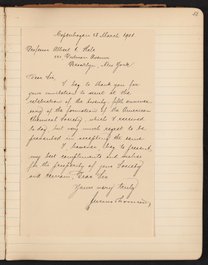 Copenhagen 13 March 1901
Professor Albert C. Hale
Brooklyn, New York
Dear Sir,
I beg to thank you for
your invitation to assist at the
celebration of the twenty fifth anniver-
sary of the foundation of the American
Chemical Society, which I received
to day but very much regret to be
prevented in accepting the same.
I however beg to present
my best compliments and wishes
for the prosperity of your Society
and remain, Dear Sir
Yours very truly
Julius Thomsen